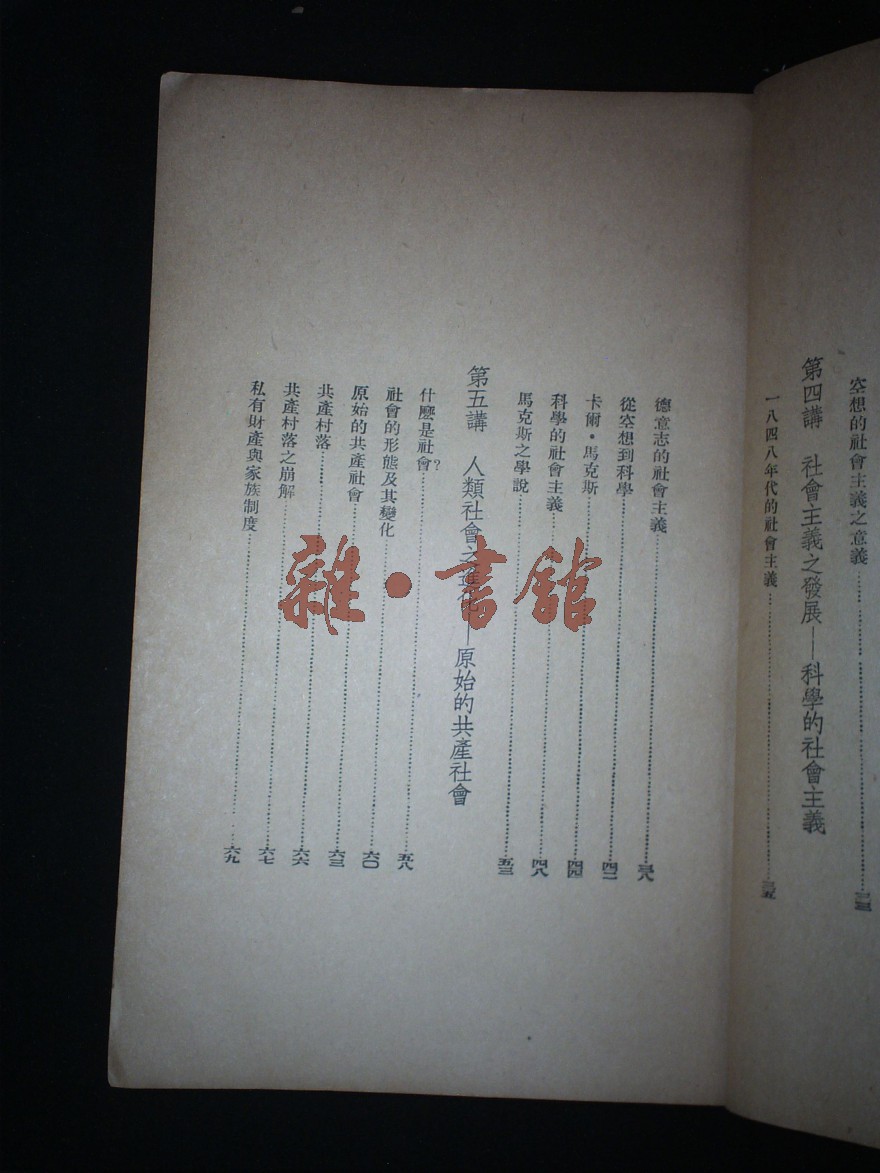 空想的社會主義之意義
第四講 社會主義之發展——科學的社會主義
一八四八年代的社會主義……三五
德意志的社會主義……三八
從空想到科學……四二
卡爾·馬克斯……四四
科學的社會主義……四八
馬克斯之學說……五三
第五講 人類社會之進化——原始的共產社會
什麼是社會?……五八
社會的形態及其變化……六〇
原始的共產社會……六三
共產村落……六六
共產村落之崩解……六七
私有財產與家族制度……六九
雜·書館